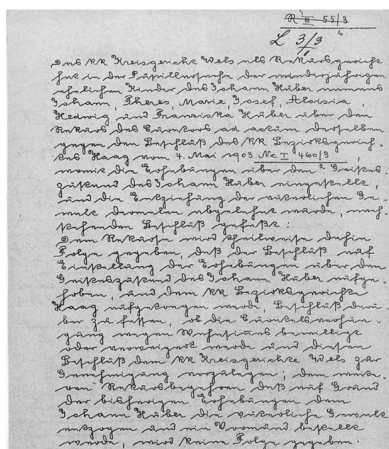 R II 55/3
L 3/3
Das KK Kreisgericht Wels als Rekursgericht
hat in der Pupillarsache der minderjährigen
ehelichen Kinder des Johann Huber namens
Johann, Theres, Marie, Josef, Aloisia,
Hedwig und Franziska Huber über den
Rekurs des Curators ad actum derselben
gegen den Beschluß des KK Bezirksgerich-
tes Haag vom 4. Mai 1903 Nc I 460/3,
womit die Erhebungen über den Geistes-
zustand des Johann Huber eingestellt,
und die Entziehung der väterlichen Ge-
walt desselben abgelehnt wurde, nach-
stehenden Beschluß gefaßt:
Dem Rekurse wird theilweise dahin
Folge gegeben, daß der Beschluß auf
Einstellung der Erhebungen über den
Geisteszustand des Johann Huber aufge-
hoben, und dem KK Bezirksgerichte
Haag aufgetragen werde, Beschluß darü-
ber zu fassen, ob die Curatelsverhän-
gung wegen Wahnsinns bewilligt
oder verweigert werde und diesen
Beschluß dem KK Kreisgerichte Wels zur
Genehmigung vorzulegen; dem weite-
ren Rekursbegehren daß auf Grund
der bisherigen Erhebungen dem
Johann Huber die väterliche Gewalt
entzogen und ein Vormund bestellt
werde, wird keine Folge gegeben.